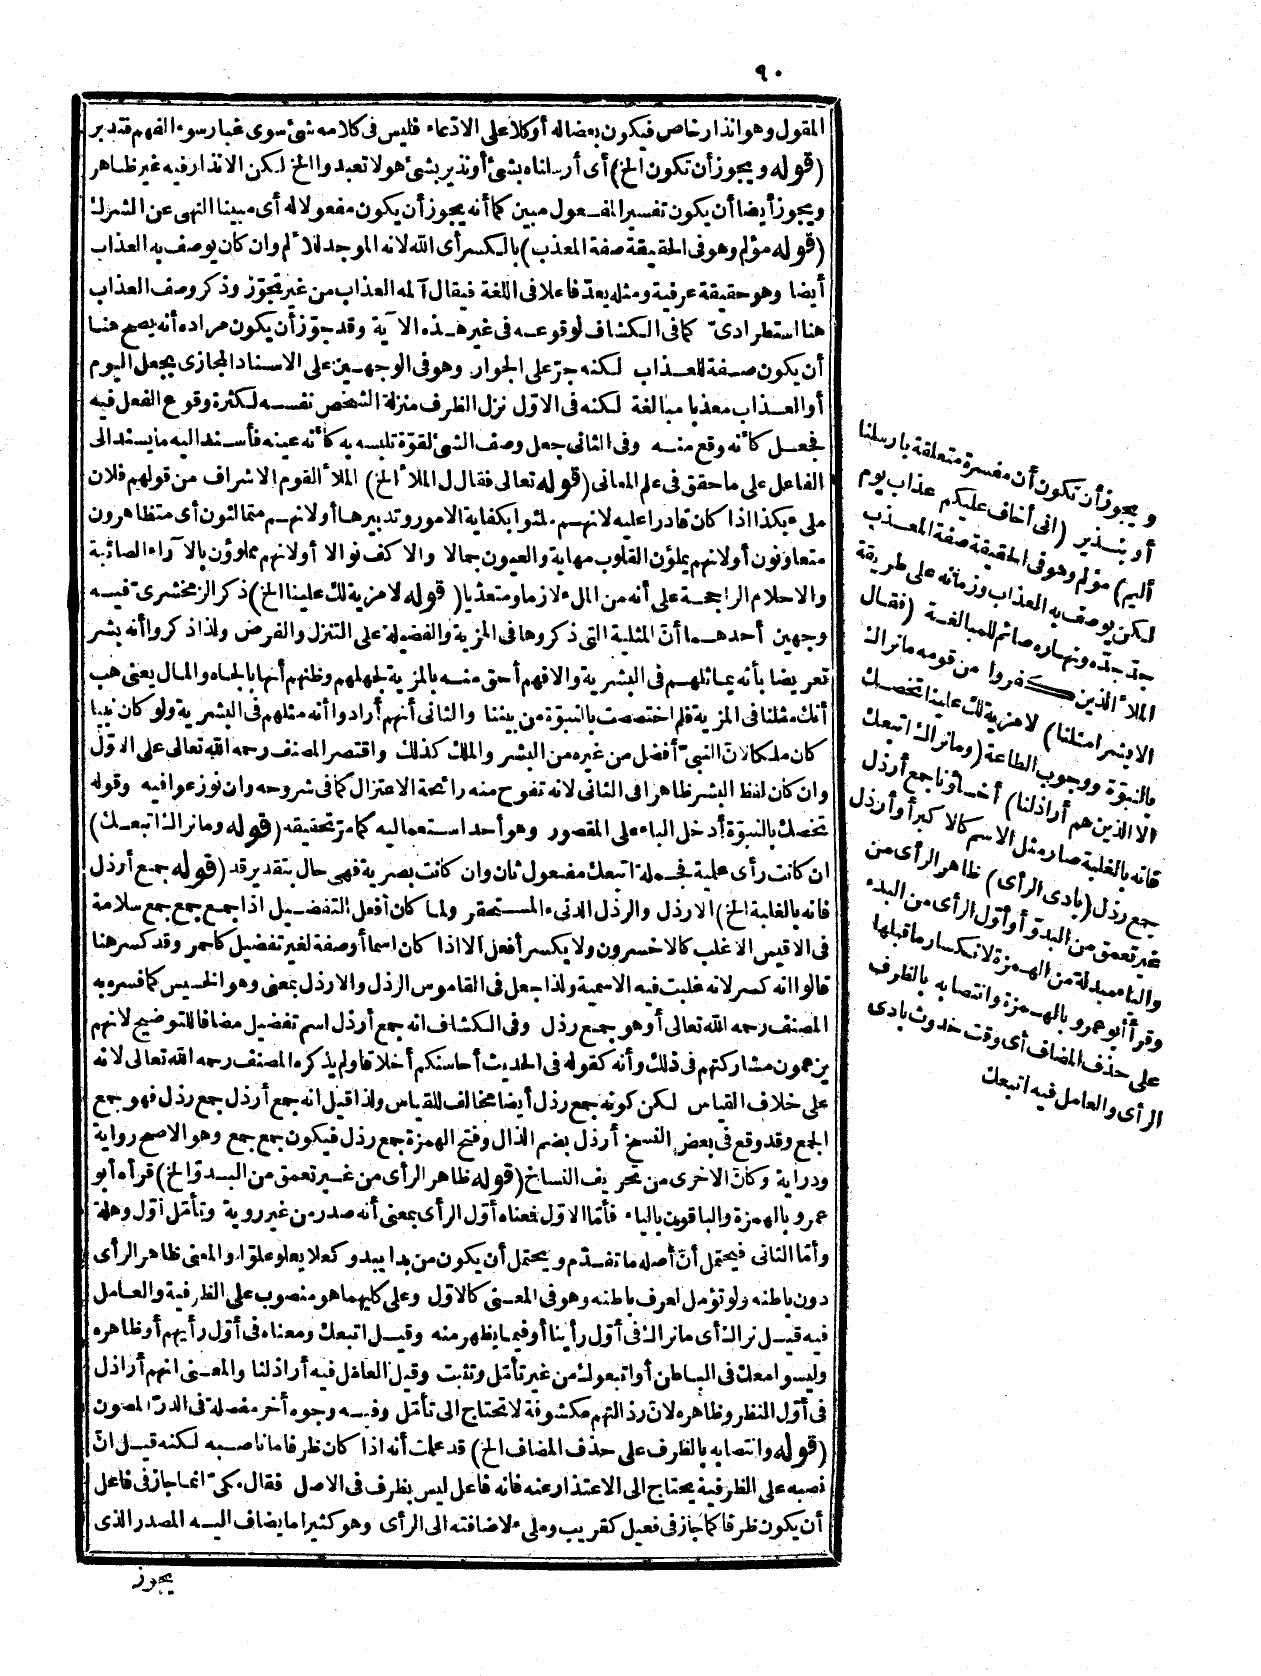 ٩٠
المقول وهو انذار خاص فيكون بعضا له أو كلا على الادّعاء فليس فى كلامه شئ سوى غبار سوء الفهم فتدبر
(قوله ويجوز أن تكون الخ) أى أرسلناه بشئ أو نذير بشئ هو لا تعبدوا الخ لكن الانذار فيه غير ظاهر
ويجوز أيضا أن يكون تفسيرا لمفعول مبين كما أنه يجوز أن يكون مفعولا له أى مبينا النهى عن الشرك
(قوله مؤلم وهو فى الحقيقة صفة المعذب) بالكسر أى الله لانه الموجد للألم وان كان يوصف به العذاب
أيضا وهو حقيقة عرفية ومثله يعدّ فاعلا فى اللغة فيقال آلمه العذاب من غير تجوّز وذكر وصف العذاب
هنا استطرادىّ كما فى الكشاف لوقوعه فى غير هذه الآية وقد جوّز أن يكون مراده أنه يصح هنا
أن يكون صفة للعذاب لكنه جرّ على الجوار وهو فى الوجهين على الاسناد المجازى بجعل اليوم
أو العذاب معذبا مبالغة لكنه فى الاوّل نزل الظرف منزلة الشخص نفسه لكثرة وقوع الفعل فيه
فجعل كأنه وقع منه وفى الثانى جعل وصف الشئ لقوّة تلبسه به كأنه عينه فأسند اليه ما يسند الى
الفاعل على ما حقق فى علم المعانى (قوله تعالى فقال الملأ الخ) الملأ القوم الاشراف من قولهم فلان
ملىء بكذا اذا كان قادرا عليه لانهم ملئوا بكفاية الامور وتدبيرها أو لانهم متمالئون أى متظاهرون
متعاونون أو لانهم يملؤن القلوب مهابة والعيون جمالا والاكف نوالا أو لانهم مملوؤن بالآراء الصائبة
والاحلام الراجحة على أنه من الملء لازما ومتعديا (قوله لا مزية لك علينا الخ) ذكر الزمخشرى فيه
وجهين أحدهما أنّ المثلية التى ذكروها فى المزية والفضيلة على التنزل والفرض ولذا ذكروا أنه بشر
تعريضا بأنه يماثلهم فى البشرية والافهم أحق منه بالمزية لجهلهم وظنهم أنها بالجاه والمال يعنى هب
أنك مثلنا فى المزية فلم اختصصت بالنبوّة من بيننا والثانى أنهم أرادوا أنه مثلهم فى البشرية ولو كان نبيا
كان ملكا لانّ النبىّ أفضل من غيره من البشر والملك كذلك واقتصر المصنف رحمه الله تعالى على الاوّل
وان كان لفظ البشر ظاهرا فى الثانى لانه تفوح منه رائحة الاعتزال كما فى شروحه وان نوزعوا فيه وقوله
تخصك بالنبوّة أدخل الباء على المقصور وهو أحد استعماليه كما مرّ تحقيقه (قوله وما نراك اتبعك)
ان كانت رأى علمية فجملة اتبعك مفعول ثان وان كانت بصرية فهى حال بتقدير قد (قوله جمع أرذل
فانه بالغلبة الخ) الارذل والرذل الدنىء المستحقر ولما كان أفعل التفضيل اذا جمع جمع جمع سلامة
فى الاقيس الاغلب كالاخسرون ولا يكسر أفعل الا اذا كان اسما أو صفة لغير تفضيل كأحمر وقد كسر هنا
قالوا انه كسر لانه غلبت فيه الاسمية ولذا جعل فى القاموس الرذل والارذل بمعنى وهو الخسيس كما فسره به
المصنف رحمه الله تعالى أو هو جمع رذل وفى الكشاف انه جمع أرذل اسم تفضيل مضافا للتوضيح لانهم
يزعمون مشاركتهم فى ذلك وأنه كقوله فى الحديث أحاسنكم أخلاقا ولم يذكره المصنف رحمه الله تعالى لانه
على خلاف القياس لكن كونه جمع رذل أيضا مخالف للقياس ولذا قيل انه جمع أرذل جمع رذل فهو جمع
الجمع وقد وقع فى بعض النسخ أرذل بضم الذال وفتح الهمزة جمع رذل فيكون جمع جمع وهو الاصح رواية
ودراية وكانّ الاخرى من تحريف النساخ (قوله ظاهر الرأى من غير تعمق من البدوّ الخ) قرأه أبو
عمرو بالهمزة والباقون بالياء فأمّا الاوّل فمعناه أوّل الرأى بمعنى أنه صدر من غير روية وتأمّل أوّل وهلة
وأمّا الثانى فيحتمل أنّ أصله ما تقدّم ويحتمل أن يكون من بدا يبدو كعلا يعلو علوّا والمعنى ظاهر الرأى
دون باطنه ولو تؤمل لعرف باطنه وهو فى المعنى كالاوّل وعلى كليهما هو منصوب على الظرفية والعامل
فيه قيل نراك أى ما نراك فى أوّل رأينا أو فيما يظهر منه وقيل اتبعك ومعناه فى أوّل رأيهم أو ظاهره
وليسوا معك فى الباطن أو اتبعوك من غير تأمّل وتثبت وقيل العامل فيه أراذلنا والمعنى انهم أراذل
فى أوّل النظر وظاهره لانّ رذالتهم مكشوفة لا تحتاج الى تأمّل وفيه وجوه أخر مفصلة فى الدرّ المصون
(قوله وانتصابه بالظرف على حذف المضاف الخ) قد علمت أنه اذا كان ظرفا ما ناصبه لكنه قيل انّ
نصبه على الظرفية يحتاج الى الاعتذار عنه فانه فاعل ليس بظرف فى الاصل فقال مكىّ انما جاز فى فاعل
أن يكون ظرفا كما جاز فى فعيل كقريب وملىء لاضافته الى الرأى وهو كثيرا ما يضاف اليه المصدر الذى
يجوز
ويجوز أن تكون أن مفسرة متعلقة بارسلنا
أو بنذير (انى أخاف عليكم عذاب يوم
أليم) مؤلم وهو فى الحقيقة صفة المعذب
لكن يوصف به العذاب وزمانه على طريقة
جدّ جدّه ونهاره صائم للمبالغة (فقال
الملأ الذين كفروا من قومه ما نراك
الا بشرا مثلنا) لا مزية لك علينا تخصك
بالنبوّة ووجوب الطاعة (وما نراك اتبعك
الا الذين هم أراذلنا) أخساؤنا جمع أرذل
فانه بالغلبة صار مثل الاسم كالاكبر أو أرذل
جمع رذل (بادى الرأى) ظاهر الرأى من
غير تعمق من البدوّ أو أوّل الرأى من البدء
والياء مبدلة من الهمزة لانكسار ما قبلها
وقرأ أبو عمرو بالهمزة وانتصابه بالظرف
على حذف المضاف أى وقت حدوث بادى
الرأى والعامل فيه اتبعك